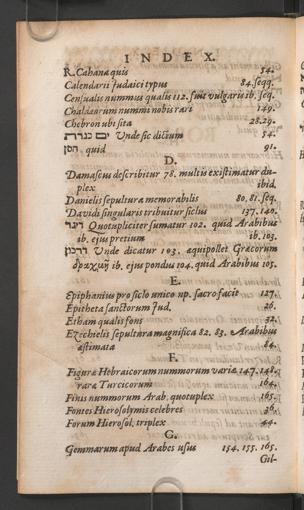 INDEX.
R. Cahana quis 54.
Calendarii Judaici typus 84. seqq.
Censualis nummus qualis 112. sivè vulgaris ib. seq.
Chaldæorum nummi nobis rari 149.
Chebron ubi sita 28. 29.
ים כנרת Unde sic dictum 54.
חסן, quid 91.
D.
Damascus describitur 78. multis existimatur du-
plex ibid.
Danielis sepultura memorabilis 80. 81. seq.
Davidi singularis tribuitur siclus 137. 140.
דינר Quotupliciter sumatur 102. quid Arabibus
ib. ejus pretium ib. 103.
דרכון Unde dicatur 103. æquipollet Græcorum
δραχμῇ ib. ejus pondus 104. quid Arabibus 105.
E.
Epiphanius pro siclo unico np. sacro facit 127.
Epitheta sanctorum Jud. 26.
Etham qualis fons 32.
Ezechielis sepultura magnifica 82. 83. Arabibus
æstimata 84.
F.
Figuræ Hebraicorum nummorum variæ 147. 148.
raræ Turcicorum 164.
Finis nummorum Arab. quotuplex 165.
Fontes Hierosolymis celebres 36.
Forum Hierosol. triplex 44.
G.
Gemmarum apud Arabes usus 154. 155. 165.
Gil-